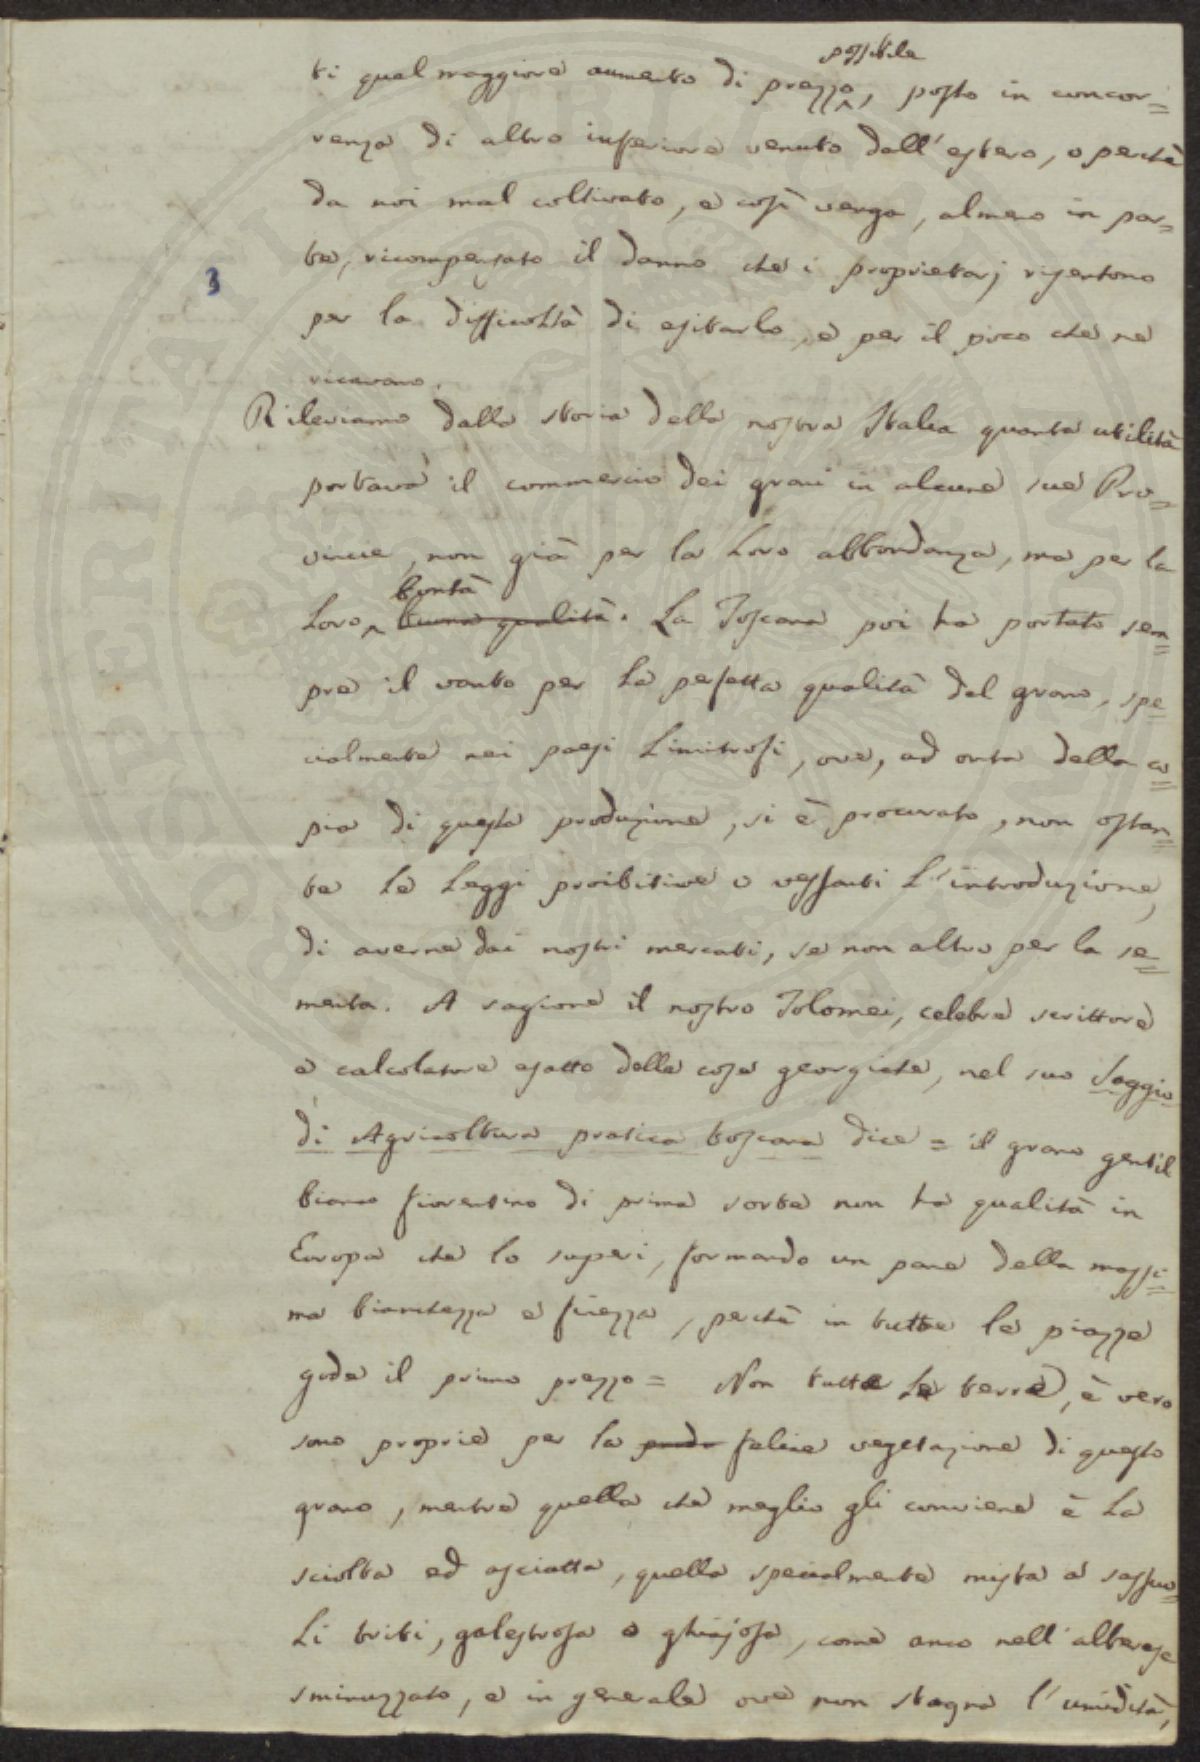 possibile
ti qual maggiore aumento di prezzo, posto in concor=
renza di altro inferiore venuto dall'estero, o perchè
da noi mal coltivato, e così venga, almeno in par=
te, ricompensato il danno che i proprietarj risentono
3
per la difficoltà di esitarlo, e per il poco che ne
ricavano.
Rileviamo dalla storia della nostra Italia quanta utilità
portava il commercio dei grani in alcune sue Pro=
vincie, non già per la loro abbondanza, ma per la
bontà
loro buona qualità. La Toscana poi ha portato sem=
pre il vanto per la perfetta qualità del grano, spe=
cialmente nei paesi limitrofi, ove, ad onta della co=
pia di questa produzione, si è procurato, non ostan=
te le leggi proibitive o vessanti l'introduzione,
di averne dai nostri mercati, se non altro per la se=
menta. A ragione il nostro Tolomei, celebre scrittore
e calcolatore esatto delle cose georgiche, nel suo Saggio
di Agricoltura pratica toscana dice = il grano gentil
bianco fiorentino di prima sorta non ha qualità in
Europa che lo superi, formando un pane della massi=
ma bianchezza e finezza, perchè in tutte le piazze
gode il primo prezzo = Non tutte le terre, è vero
sono proprie per la felice vegetazione di questo
grano, mentre quella che meglio gli conviene è la
sciolta ed asciatta, quella specialmente mista a sassuo=
li triti, galestrosa o ghiajosa, come anco nell'alberese
sminuzzato, e in generale ove non stagna l'umidità,